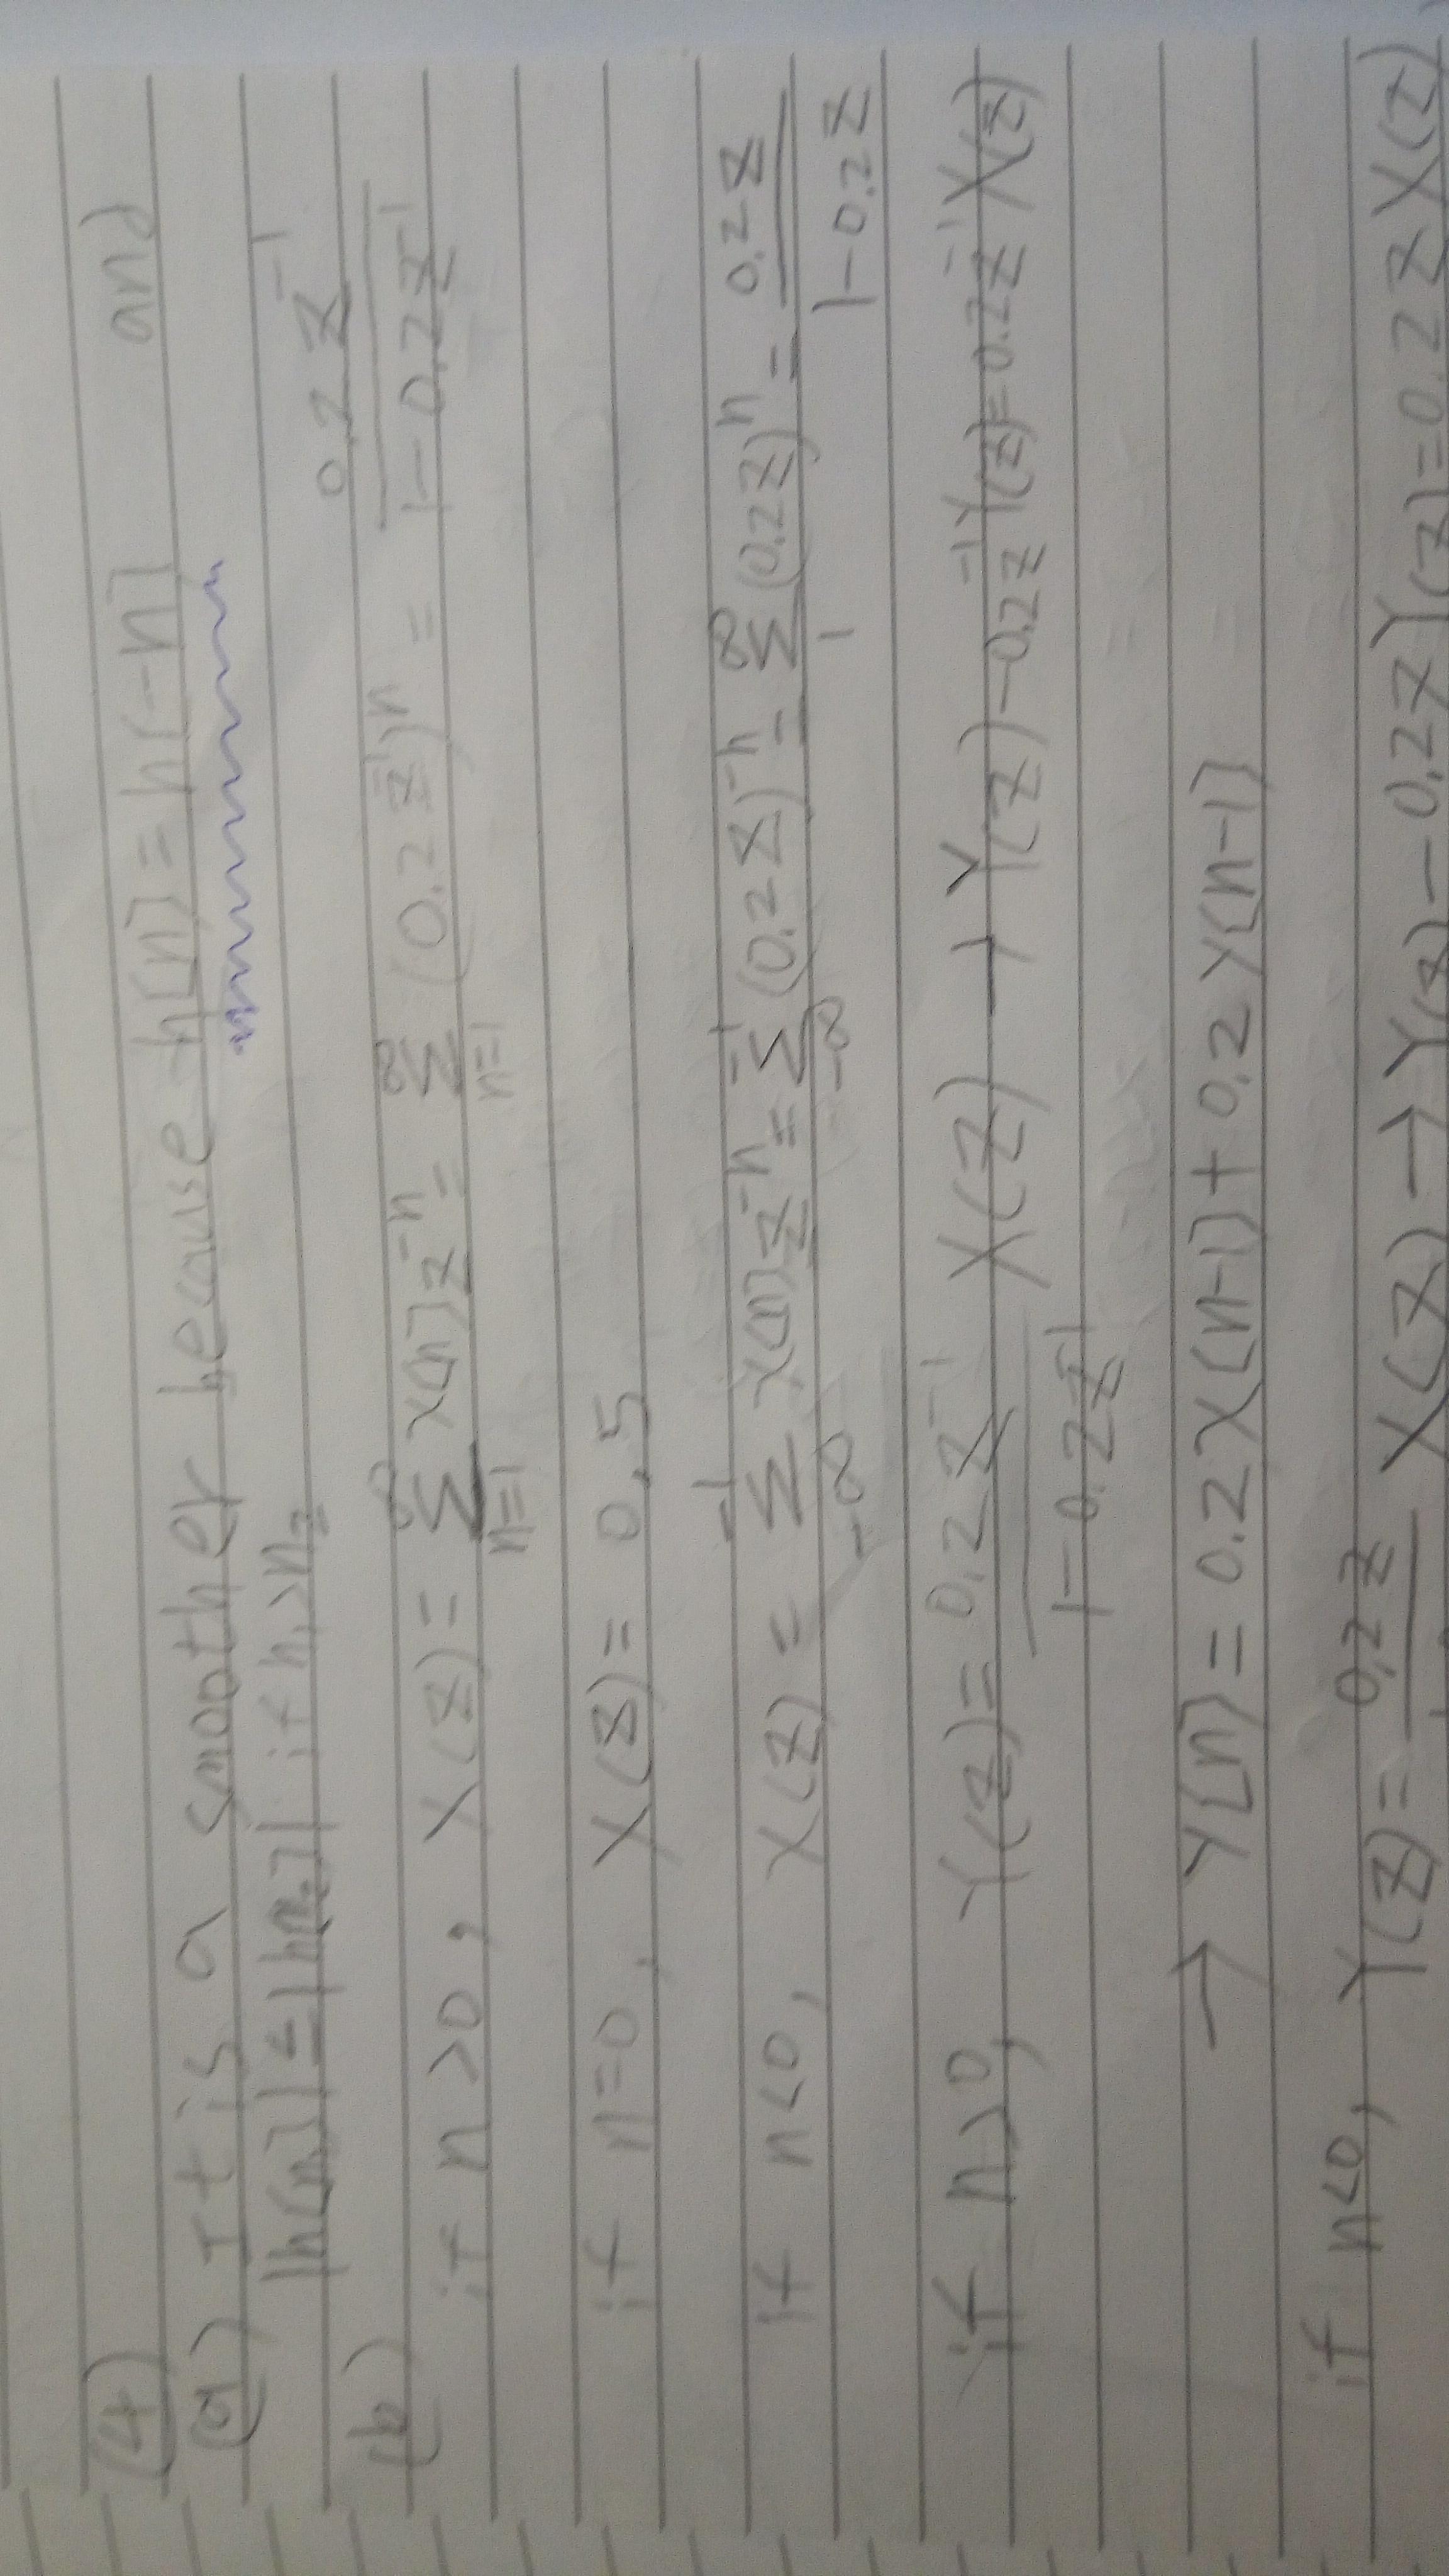 (4)
(a) It is a smoother because h[n] = h[-n] and
|h[n₁]| ≤ |h[n₂]| if n₁>n₂
(b)
if n>0, X(z) = ∑_{n=1}^{∞} x[n]z^{-n} = ∑_{n=1}^{∞} (0.2z^{-1})^n = 0.2z^{-1} / (1-0.2z^{-1})
if n=0, X(z) = 0.5
if n<0, X(z) = ∑_{-∞}^{-1} x[n]z^{-n} = ∑_{-∞}^{-1} (0.2z)^{-n} = ∑_{1}^{∞} (0.2z)^n = 0.2z / (1-0.2z)
if n>0, Y(z) = 0.2z^{-1} / (1-0.2z^{-1}) X(z) → Y(z)-0.2z^{-1}Y(z)=0.2z^{-1}X(z)
→ Y[n] = 0.2X[n-1]+0.2Y[n-1]
if n<0, Y(z) = 0.2z X(z) → Y(z)-0.2zY(z)=0.2zX(z)